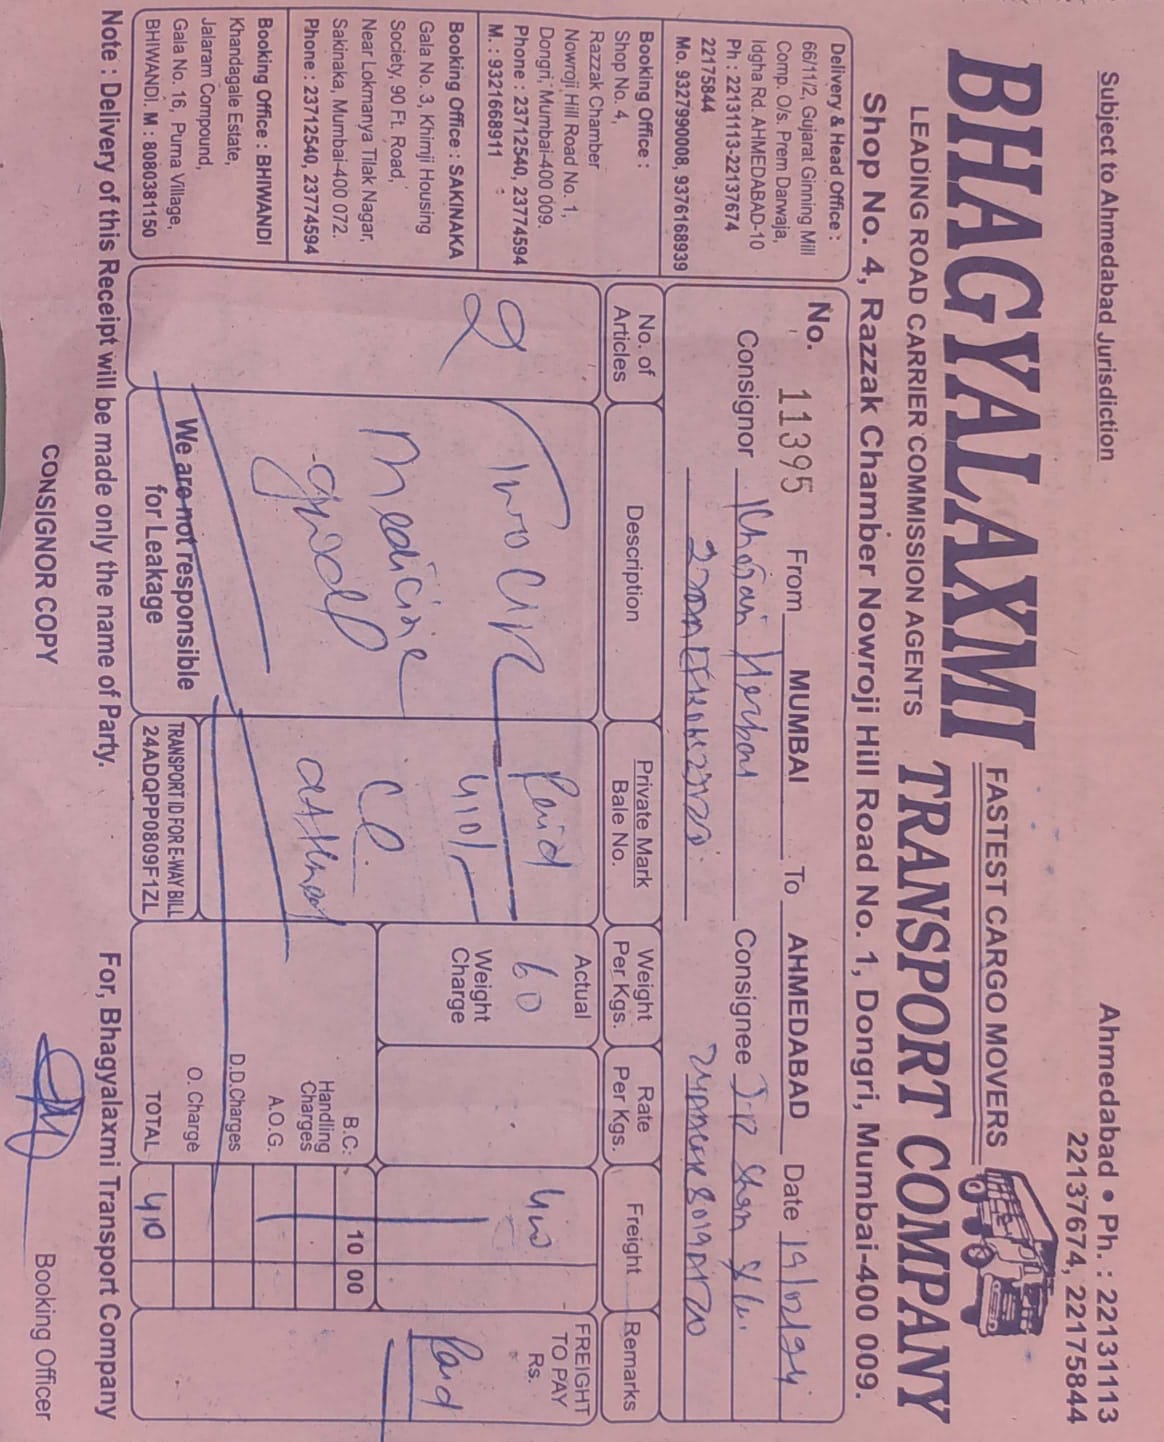 Subject to Ahmedabad Jurisdiction
Ahmedabad • Ph. : 22131113
22137674, 22175844
FASTEST CARGO MOVERS
BHAGYALAXMI TRANSPORT COMPANY
LEADING ROAD CARRIER COMMISSION AGENTS
Shop No. 4, Razzak Chamber Nowroji Hill Road No. 1, Dongri, Mumbai-400 009.
Delivery & Head Office :
66/11/2, Gujarat Ginning Mill
Comp. O/s. Prem Darwaja,
Idgha Rd. AHMEDABAD-10
Ph : 22131113-22137674
22175844
Mo. 9327990008, 9376168939
Booking Office :
Shop No. 4,
Razzak Chamber
Nowroji Hill Road No. 1,
Dongri, Mumbai-400 009.
Phone : 23712540, 23774594
M. : 9321668911
Booking Office : SAKINAKA
Gala No. 3, Khimji Housing
Society, 90 Ft. Road,
Near Lokmanya Tilak Nagar,
Sakinaka, Mumbai-400 072.
Phone : 23712540, 23774594
Booking Office : BHIWANDI
Khandagale Estate,
Jalaram Compound,
Gala No. 16, Purna Village,
BHIWANDI. M : 8080381150
No. 11395 From MUMBAI To AHMEDABAD Date
Consignor Herbal Consignee
No. of Articles
Description
Private Mark
Bale No.
Weight Per Kgs.
Rate Per Kgs.
Freight
Remarks
2
Two
Medicine
Paid
410/-
Actual
60
Weight Charge
410
FREIGHT TO PAY Rs.
Paid
B.C. 10 00
Handling Charges
A.O.G.
D.D.Charges
O. Charge
TOTAL 410
We are not responsible
for Leakage
TRANSPORT ID FOR E-WAY BILL
24ADQPP0809F1ZL
Note : Delivery of this Receipt will be made only the name of Party.
For, Bhagyalaxmi Transport Company
CONSIGNOR COPY
Booking Officer